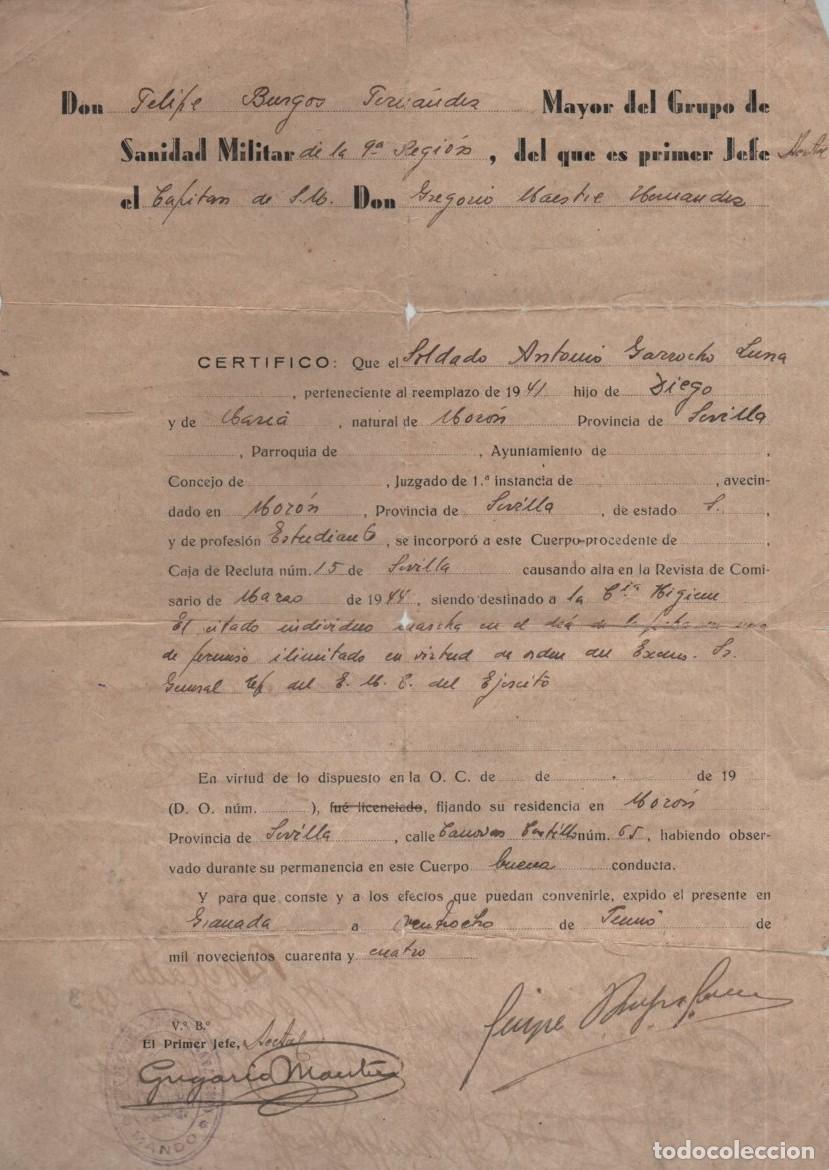 Don Felipe Burgos Fernández Mayor del Grupo de
Sanidad Militar de la 9ª Región, del que es primer Jefe Acctal
el Capitan de S.M. Don Gregorio Maestre Hernandez
CERTIFICO: Que el Soldado Antonio Garrocho Luna
, perteneciente al reemplazo de 1941 hijo de Diego
y de Maria, natural de Morón Provincia de Sevilla
, Parroquia de , Ayuntamiento de ,
Concejo de , Juzgado de 1.ª instancia de , avecin-
dado en Morón, Provincia de Sevilla, de estado S.,
y de profesión Estudiante, se incorporó a este Cuerpo procedente de ,
Caja de Recluta núm. 15 de Sevilla causando alta en la Revista de Comi-
sario de Marzo de 1944, siendo destinado a la Cía Higiene
El citado individuo marcha en el día de la fecha en uso
de permiso ilimitado en virtud de orden del Excmo. Sr.
General Jefe del E. M. C. del Ejercito
En virtud de lo dispuesto en la O. C. de de de 19
(D. O. núm. ), fué licenciado, fijando su residencia en Morón
Provincia de Sevilla, calle Canovas Castillo núm. 65, habiendo obser-
vado durante su permanencia en este Cuerpo buena conducta.
Y para que conste y a los efectos que puedan convenirle, expido el presente en
Granada a veintiocho de de
mil novecientos cuarenta y cuatro
V.º B.º
El Primer Jefe, Acctal
Felipe Burgos
Gregorio Maestre
MANDO
todocoleccion